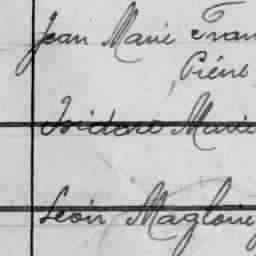 Jean Marie Fran
Pierre
Isidore Marie
Léon Magloire